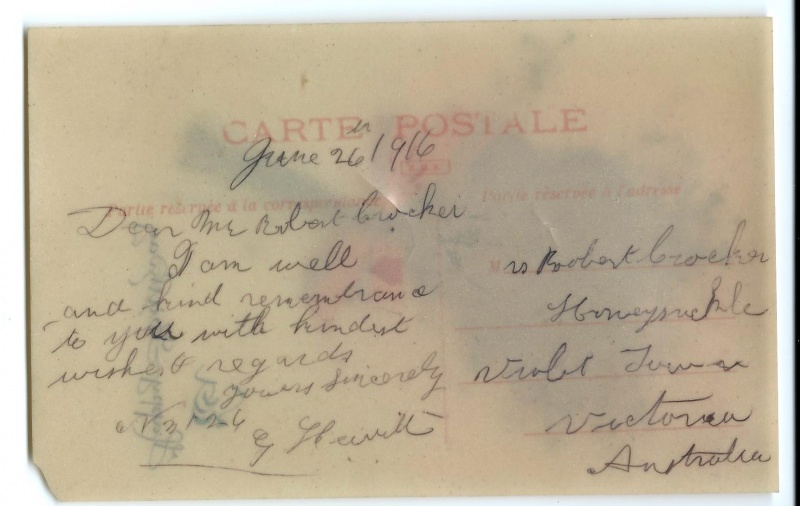 CARTE POSTALE
June 26th 1916
Partie réservée à la correspondance
Partie réservée à l'adresse
Dear Mr Robert Crocker
I am well
and kind remembrance
to you with kindest
wishes & regards
yours Sincerely
G Hewitt
M
rs Robert Crocker
Honeysuckle
Violet Town
Victoria
Australia